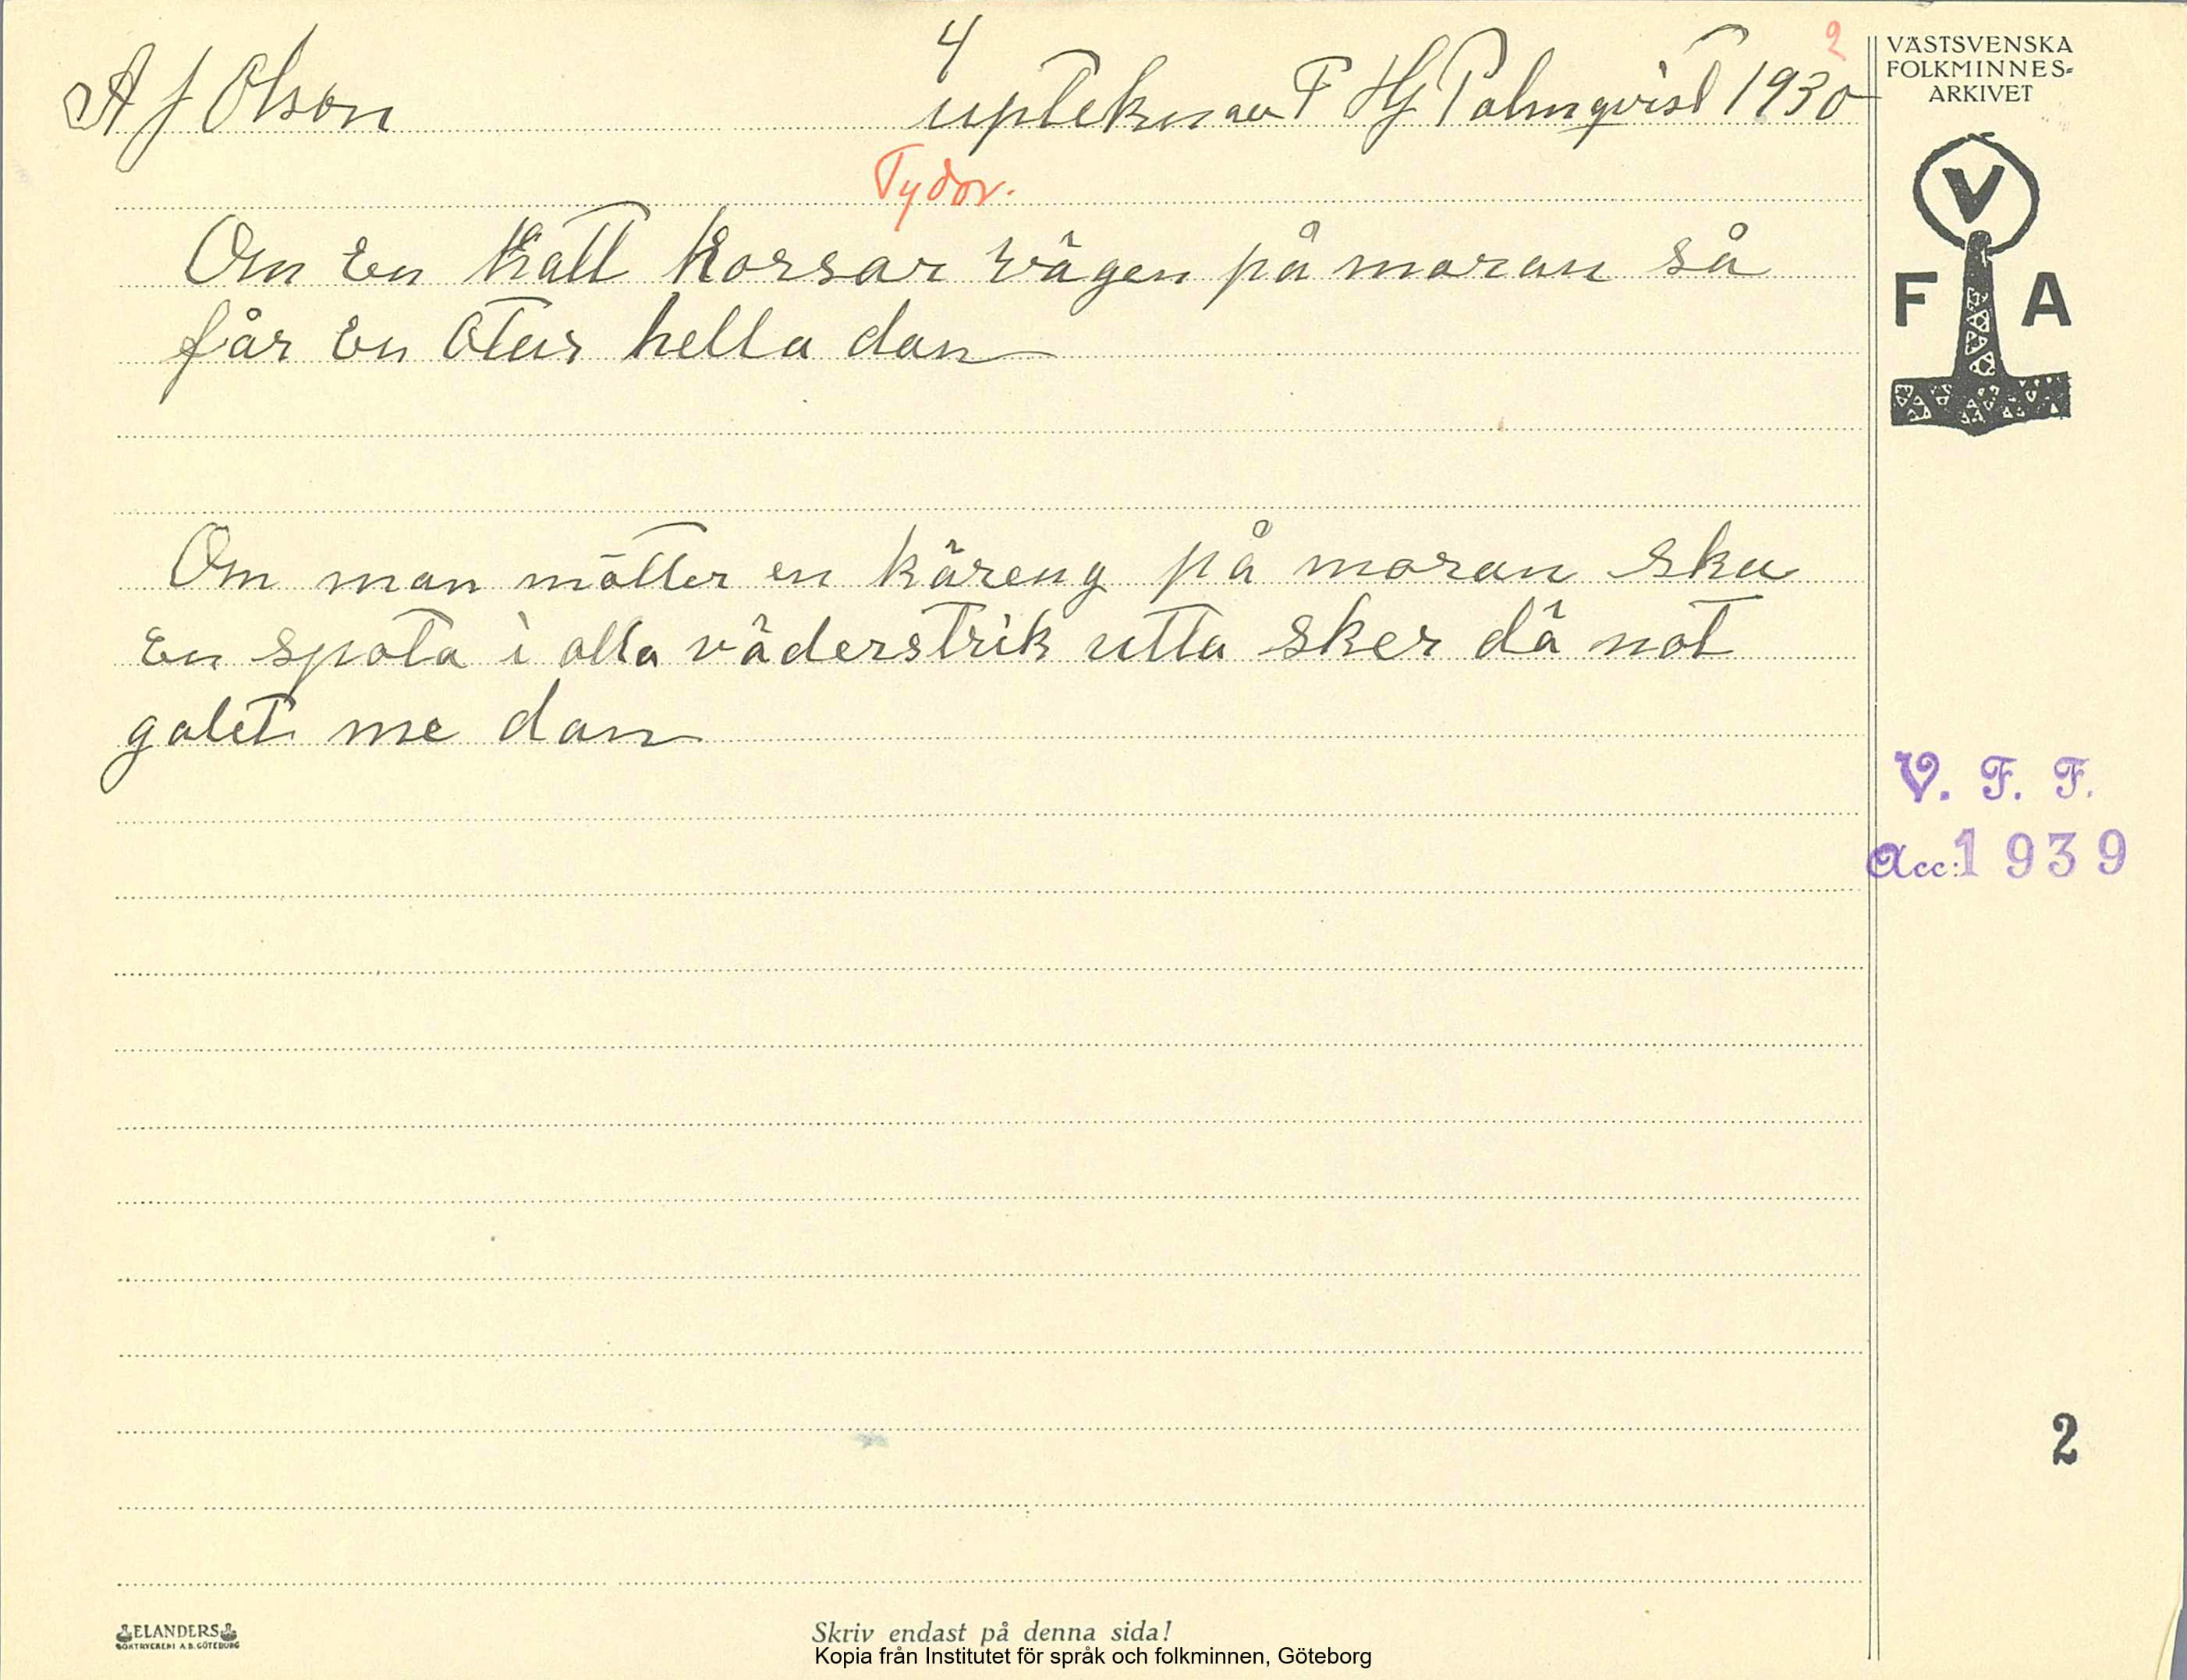 4
A J Olson uptekn av F Hj Palmqvist 1930
2
Tydor.
Om en Katt Korsar vägen på moran så
får en otur hella dan
Om man möller en käreng på moran ska
en spota i alla väderstrik utta sker dä not
galet me dan
VÄSTSVENSKA
FOLKMINNES-
ARKIVET
V
F A
V. F. F.
Acc: 1939
2
ELANDERS
BOKTRYCKERI A.B. GÖTEBORG
Skriv endast på denna sida!
Kopia från Institutet för språk och folkminnen, Göteborg